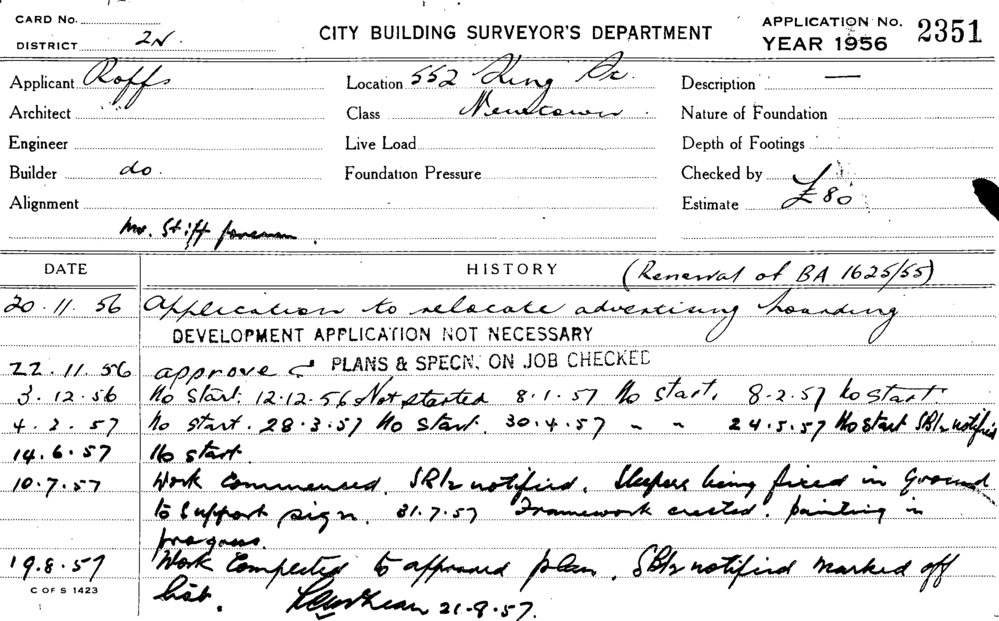 CARD No.
DISTRICT 2N.
CITY BUILDING SURVEYOR'S DEPARTMENT
APPLICATION No. 2351
YEAR 1956
Applicant Roffs
Location 552 King St.
Description —
Architect
Class Newtown
Nature of Foundation
Engineer
Live Load
Depth of Footings
Builder do.
Foundation Pressure
Checked by
Alignment
Estimate £80
Mr. Stiff foreman.
DATE
HISTORY (Renewal of BA 1625/55)
20.11.56 Application to relocate advertising hoarding
DEVELOPMENT APPLICATION NOT NECESSARY
22.11.56 approve PLANS & SPECN. ON JOB CHECKED
3.12.56 No start. 12.12.56 Not started 8.1.57 No start. 8.2.57 No start
4.3.57 No start. 28.3.57 No start. 30.4.57 " " 24.5.57 No start notified
14.6.57 No start.
10.7.57 Work commenced. notified. Sleepers being fixed in ground
to support sign. 31.7.57 Framework erected. painting in
progress.
19.8.57 Work Completed to approved plan. notified marked off
list. 21.8.57.
C OF S 1423